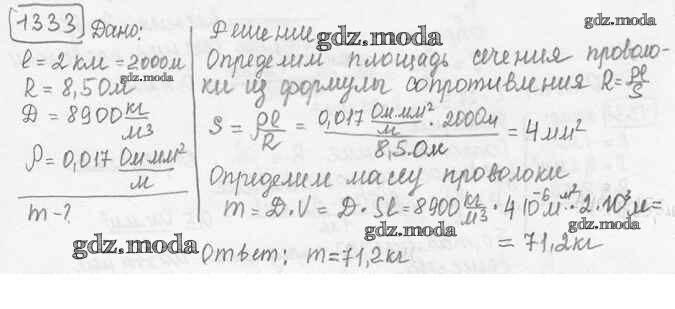 1333 Дано:
l = 2 км = 2000м
R = 8,50м
D = 8900 кг/м3
ρ = 0,017 Ом мм²/м
m - ?
Решение
Определим площадь сечения проволо-
ки из формулы сопротивления R = ρl/S
S = ρl/R = 0,017 Ом мм²/м · 2000м / 8,5 Ом = 4 мм²
Определим массу проволоки
m = D · V = D · Sl = 8900 кг/м3 · 4 10⁻⁶ м² · 2 · 10³ м =
= 71,2 кг
Ответ: m = 71,2 кг
gdz.moda
gdz.moda
gdz.moda
gdz.moda
gdz.moda
gdz.moda
gdz.moda